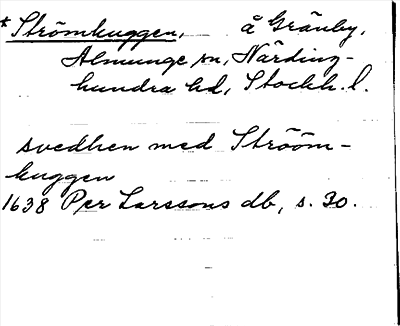 * Strömkuggen, å Gränby,
Almunge sn, Närding-
hundra hd, Stockh. l.
svedhen med Strööm-
kuggen
1638 Per Larssons db, s. 30.